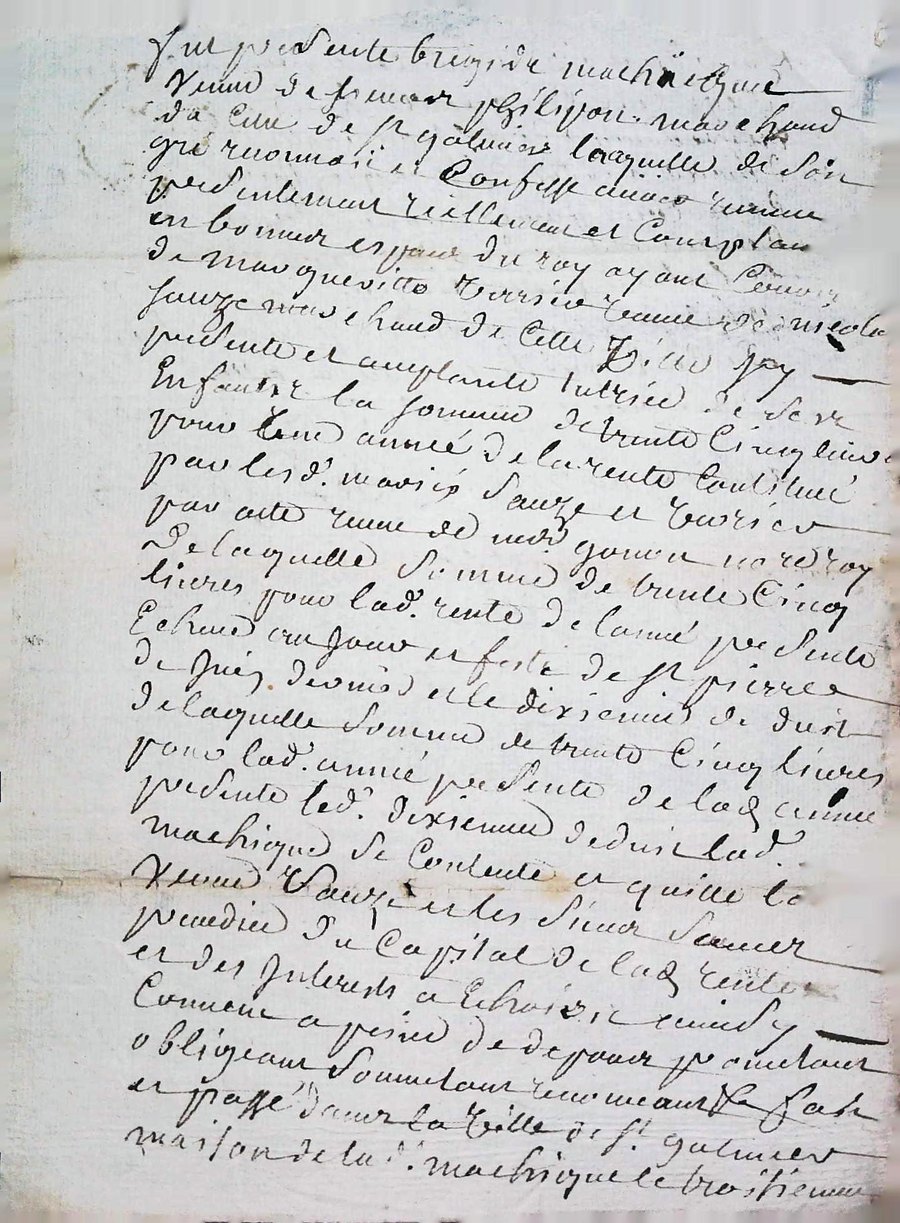 fut presente brigide machicque
veuve de simeon philipon marchand
de cette de st galmier laquelle de son
gré reconnoit et confesse avoir receue
presentement reellement et comptan
en bonnes espece du roy ayant cours
de margueritte terrier veuve de nicolas
sauze marchand de cette ville icy
presente et aceptante tutrice de ses
enfants la somme de trente cinq livres
pour une année de la rente constitué
par lesd. mariés sauze et terrier
par acte receue de me. gonon no.re royl
de laquelle somme de trente cinq
livres pour lad. rente de lanné presente
echeue au jour et feste de st pierre
de juin dernier et le dixieme de duit
de laquelle somme de trente cinq livres
pour lad. année presente de lad. année
presente led. dixieme deduit lad.
machique se contente et quitte la
veuve sauze et les siens sans
prejudice du capital de lad. rente
et des interests a echoir car ainsy
convenu a peine de depens prometant
obligeant soumetant renonceant fait
et passé dans la ville de st. galmier
maison de la d. machique le troisieme